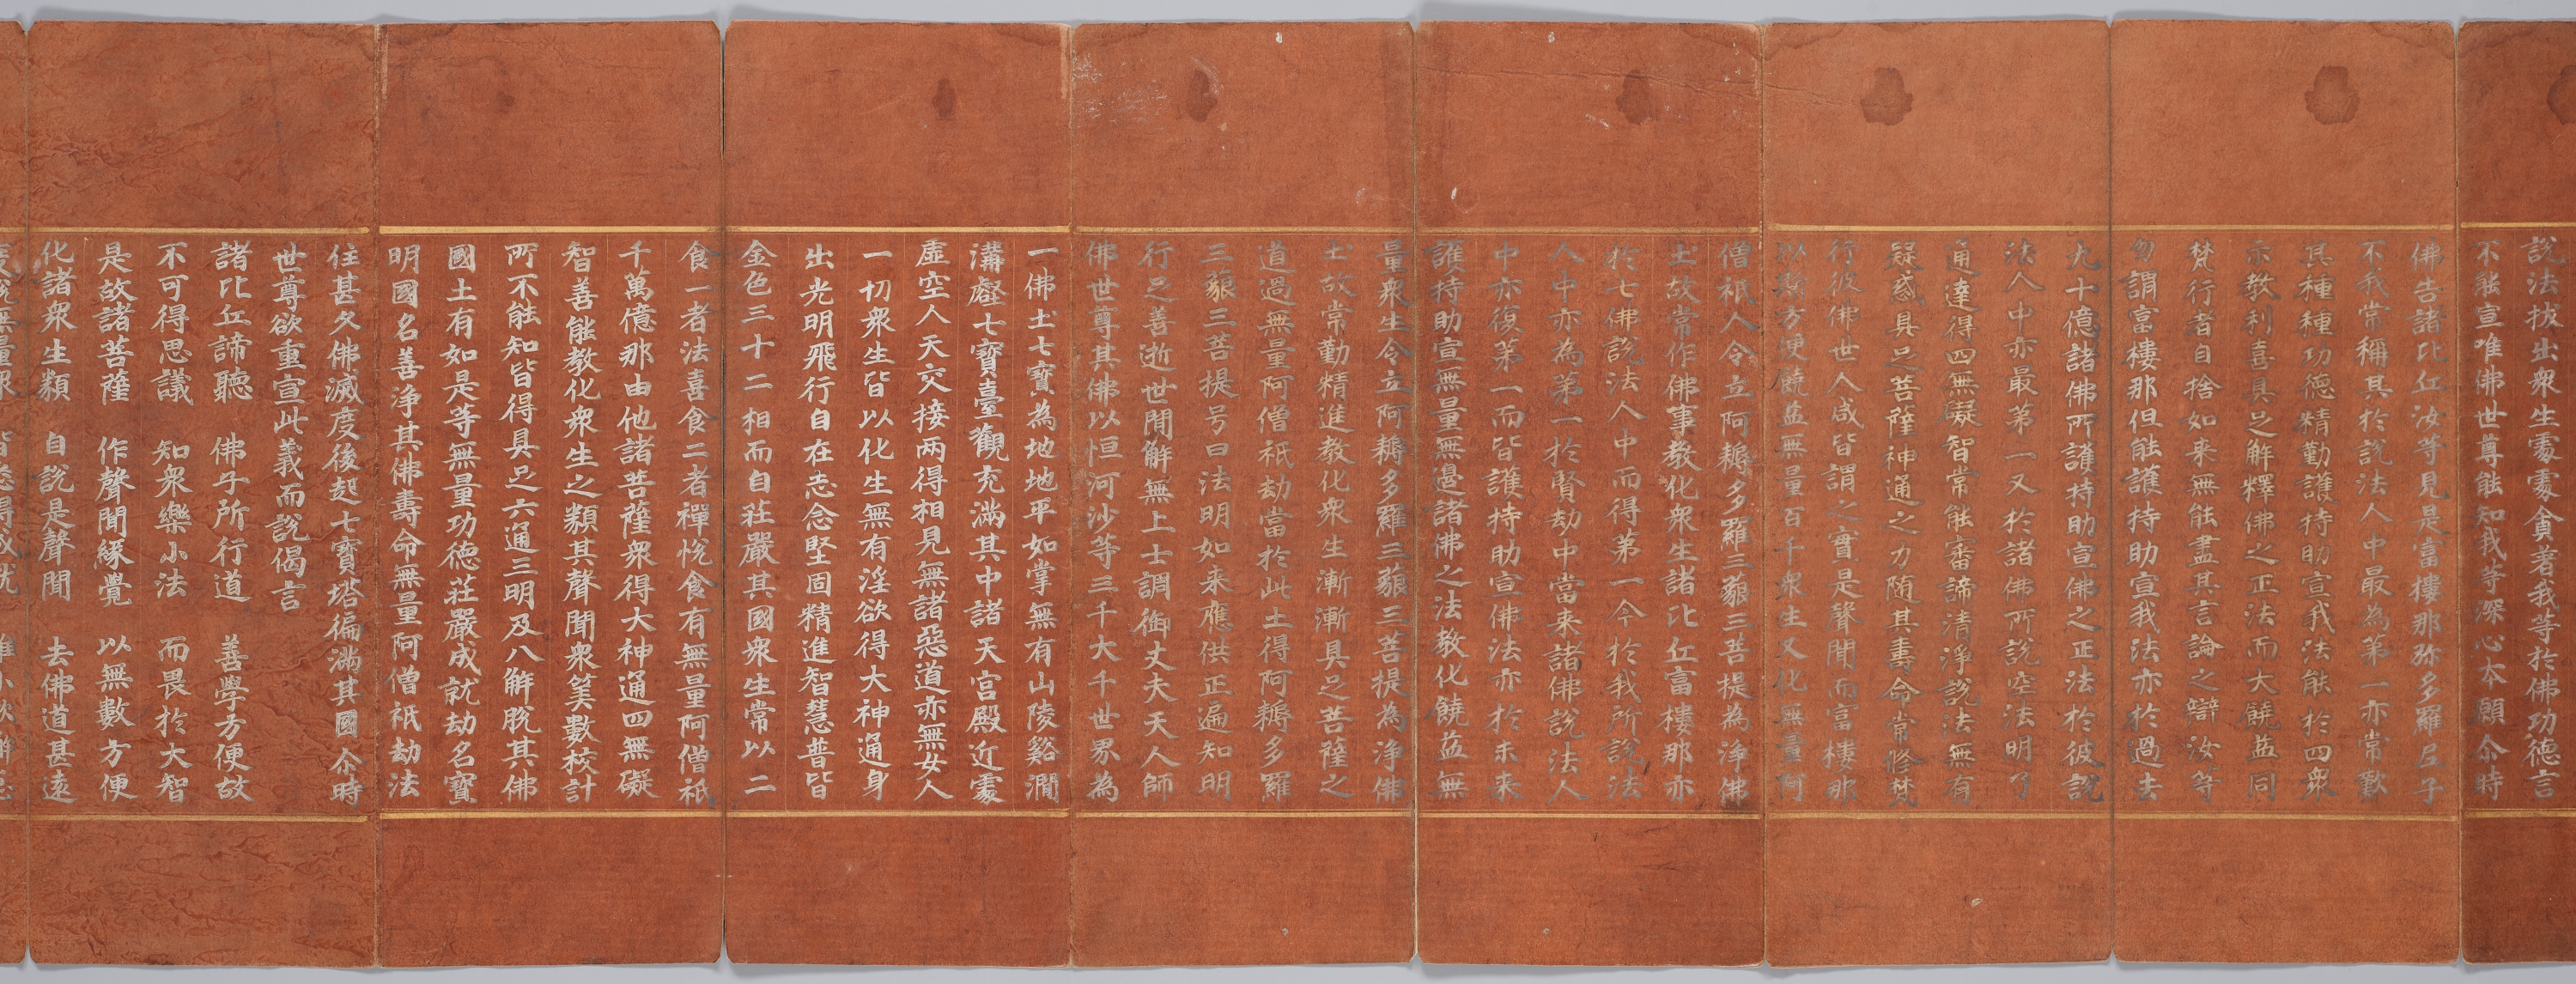 說法拔出衆生處處貪著我等於佛功德言
不能宣唯佛世尊能知我等深心本願尒時
佛告諸比丘汝等見是富樓那弥多羅尼子
不我常稱其於說法人中最為第一亦常歎
其種種功德精勤護持助宣我法能於四衆
示教利喜具足解釋佛之正法而大饒益同
梵行者自捨如来無能盡其言論之辯汝等
勿謂富樓那但能護持助宣我法亦於過去
九十億諸佛所護持助宣佛之正法於彼說
法人中亦最第一又於諸佛所說空法明了
通達得四無礙智常能審諦清淨說法無有
疑惑具足菩薩神通之力随其壽命常修梵
行彼佛世人咸皆謂之實是聲聞而富樓那
以斯方便饒益無量百千衆生又化無量阿
僧祇人令立阿耨多羅三藐三菩提為淨佛
土故常作佛事教化衆生諸比丘富樓那亦
於七佛說法人中而得第一今於我所說法
人中亦為第一於賢劫中當来諸佛說法人
中亦復第一而皆護持助宣佛法亦於未来
護持助宣無量無邊諸佛之法教化饒益無
量衆生令立阿耨多羅三藐三菩提為淨佛
土故常勤精進教化衆生漸漸具足菩薩之
道過無量阿僧祇劫當於此土得阿耨多羅
三藐三菩提号曰法明如来應供正遍知明
行足善逝世間解無上士調御丈夫天人師
佛世尊其佛以恒河沙等三千大千世界為
一佛土七寶為地地平如掌無有山陵谿澗
溝壑七寶臺觀充滿其中諸天宮殿近處
虛空人天交接兩得相見無諸惡道亦無女人
一切衆生皆以化生無有淫欲得大神通身
出光明飛行自在志念堅固精進智慧普皆
金色三十二相而自莊嚴其國衆生常以二
食一者法喜食二者禪悅食有無量阿僧祇
千萬億那由他諸菩薩衆得大神通四無礙
智善能教化衆生之類其聲聞衆筭數校計
所不能知皆得具足六通三明及八解脫其佛
國土有如是等無量功德莊嚴成就劫名寶
明國名善淨其佛壽命無量阿僧祇劫法
住甚久佛滅度後起七寶塔徧滿其國尒時
世尊欲重宣此義而說偈言
諸比丘諦聽　佛子所行道　善學方便故
不可得思議　知衆樂小法　而畏於大智
是故諸菩薩　作聲聞緣覺　以無數方便
化諸衆生類　自說是聲聞　去佛道甚遠